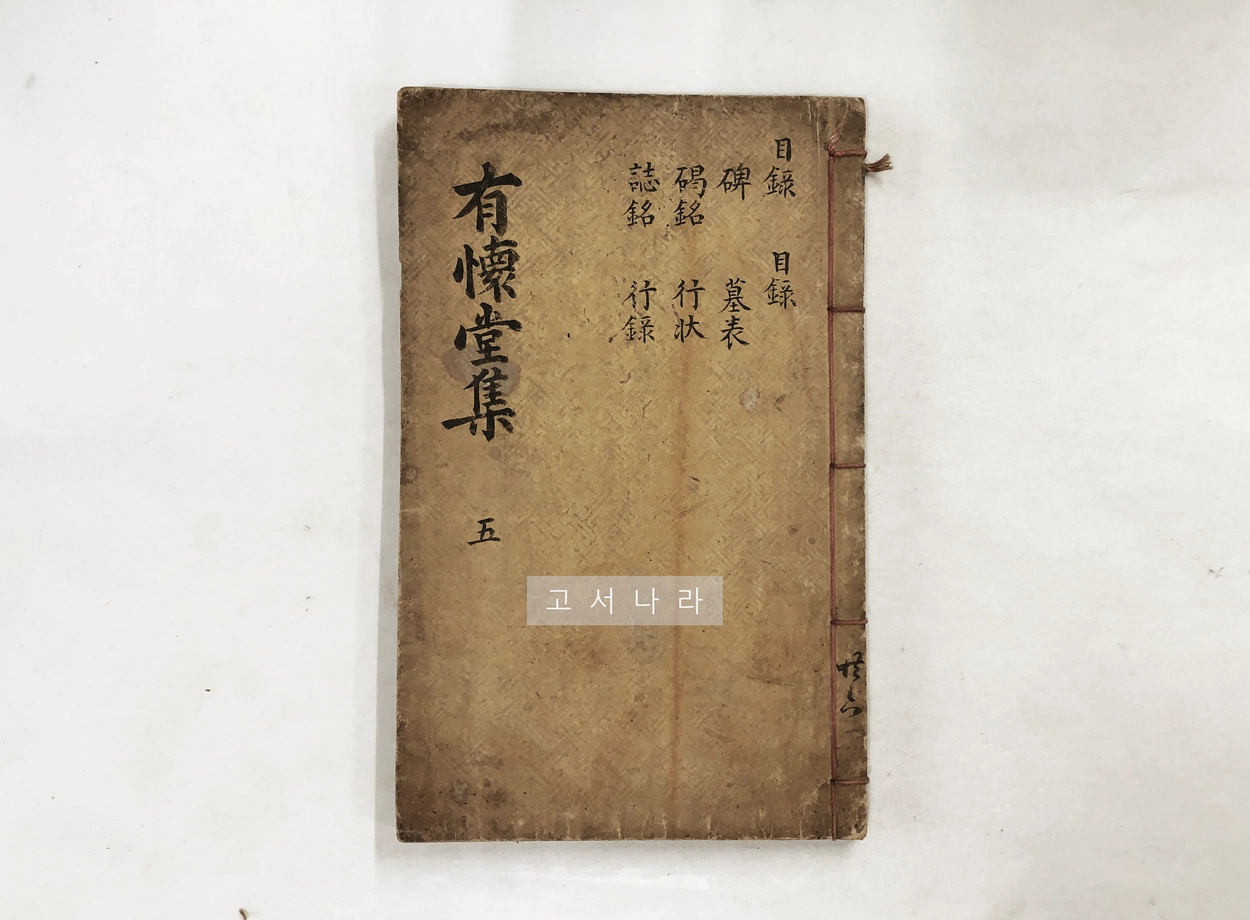 目錄 目錄
碑 墓表
碣銘 行狀
誌銘 行錄
有懷堂集 五
共六
고서나라